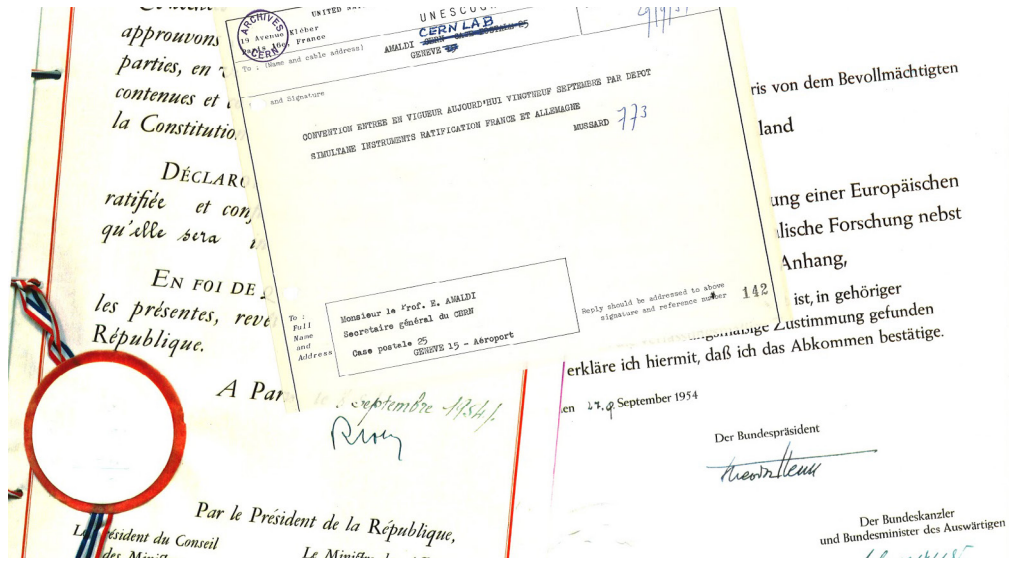 approuvons
parties, en
contenues et
la Constitution
DÉCLARO
ratifiée et conf
qu'elle sera
EN FOI DE
les présentes, revê
République.
A Par
septembre 1954.
Par le Président de la République,
ésident du Conseil
Le Minist
des Minis
ARCHIVES
CERN
UNITED
19 Avenue Kléber
Paris 16e, France
To : (Name and cable address)
UNESCO
CERN LAB
AMALDI CERN CASE POSTALE 25
GENEVE
and Signature
CONVENTION ENTREE EN VIGUEUR AUJOURD'HUI VINGTNEUF SEPTEMBRE PAR DEPOT
SIMULTANE INSTRUMENTS RATIFICATION FRANCE ET ALLEMAGNE
MUSSARD 773
To :
Full
Name
and
Address
Monsieur le Prof. E. AMALDI
Secretaire général du CERN
Case postale 25
GENEVE 15 - Aéroport
Reply should be addressed to above
signature and reference number
142
ris von dem Bevollmächtigten
land
ung einer Europäischen
lische Forschung nebst
Anhang,
ist, in gehöriger
mäßige Zustimmung gefunden
erkläre ich hiermit, daß ich das Abkommen bestätige.
en September 1954
Der Bundespräsident
Der Bundeskanzler
und Bundesminister des Auswärtigen